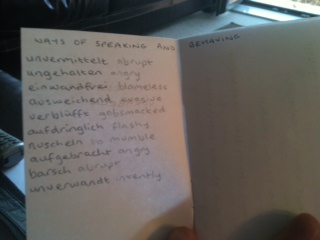 WAYS OF SPEAKING AND BEHAVING
unvermittelt abrupt
angehalten angry
einwandfrei blameless
ausweichend evasive
verblüfft gobsmacked
aufdringlich flashy
nuscheln to mumble
aufgebracht angry
barsch abrupt
unverwandt intently